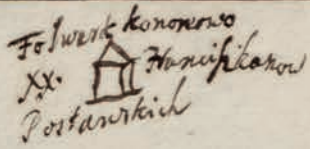 Folwark kononowo
XX. Franciszkanow
Postawskich